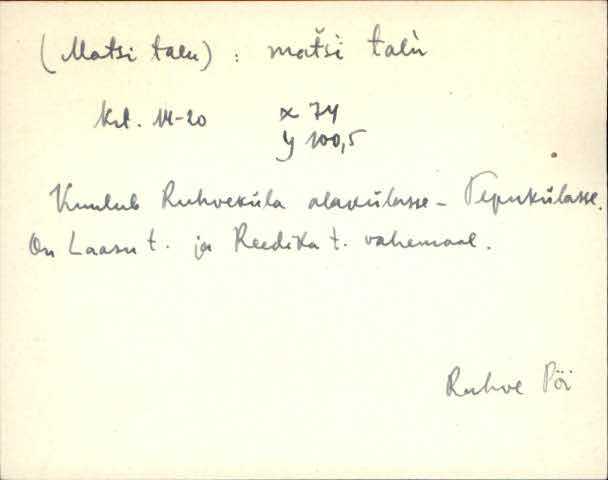 (Matsi talu) : matši talù
Krt. M-20 x 74
y 100,5
Kuulub Ruhveküla alakülasse - Tepukülasse.
On Laasu t. ja Reedika t. vahemaal.
Ruhve Pöi